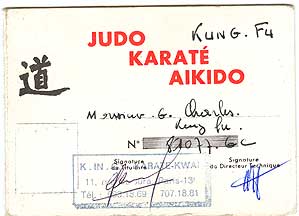 KUNG-FU
JUDO
KARATÉ
AIKIDO
道
Monsieur G. Charles
Kung Fu
N° 81077.GC
Signature
du titulaire
Signature
du Directeur Technique
K. IN. KARATE-KWAI
11, Paris-13e
Tél. 707.18.81